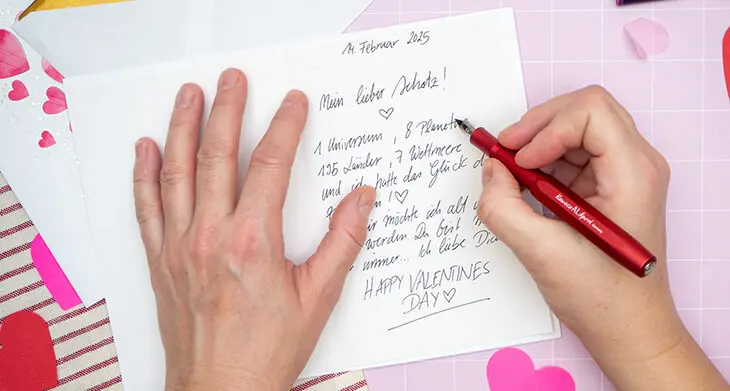 14. Februar 2025
Mein lieber Schatz!
1 Universum, 8 Planet
195 Länder, 7 Weltmeere
und ich hatte das Glück d
möchte ich alt
werden. Du bist
immer... Ich liebe Dic
HAPPY VALENTINES
DAY
Kaweco